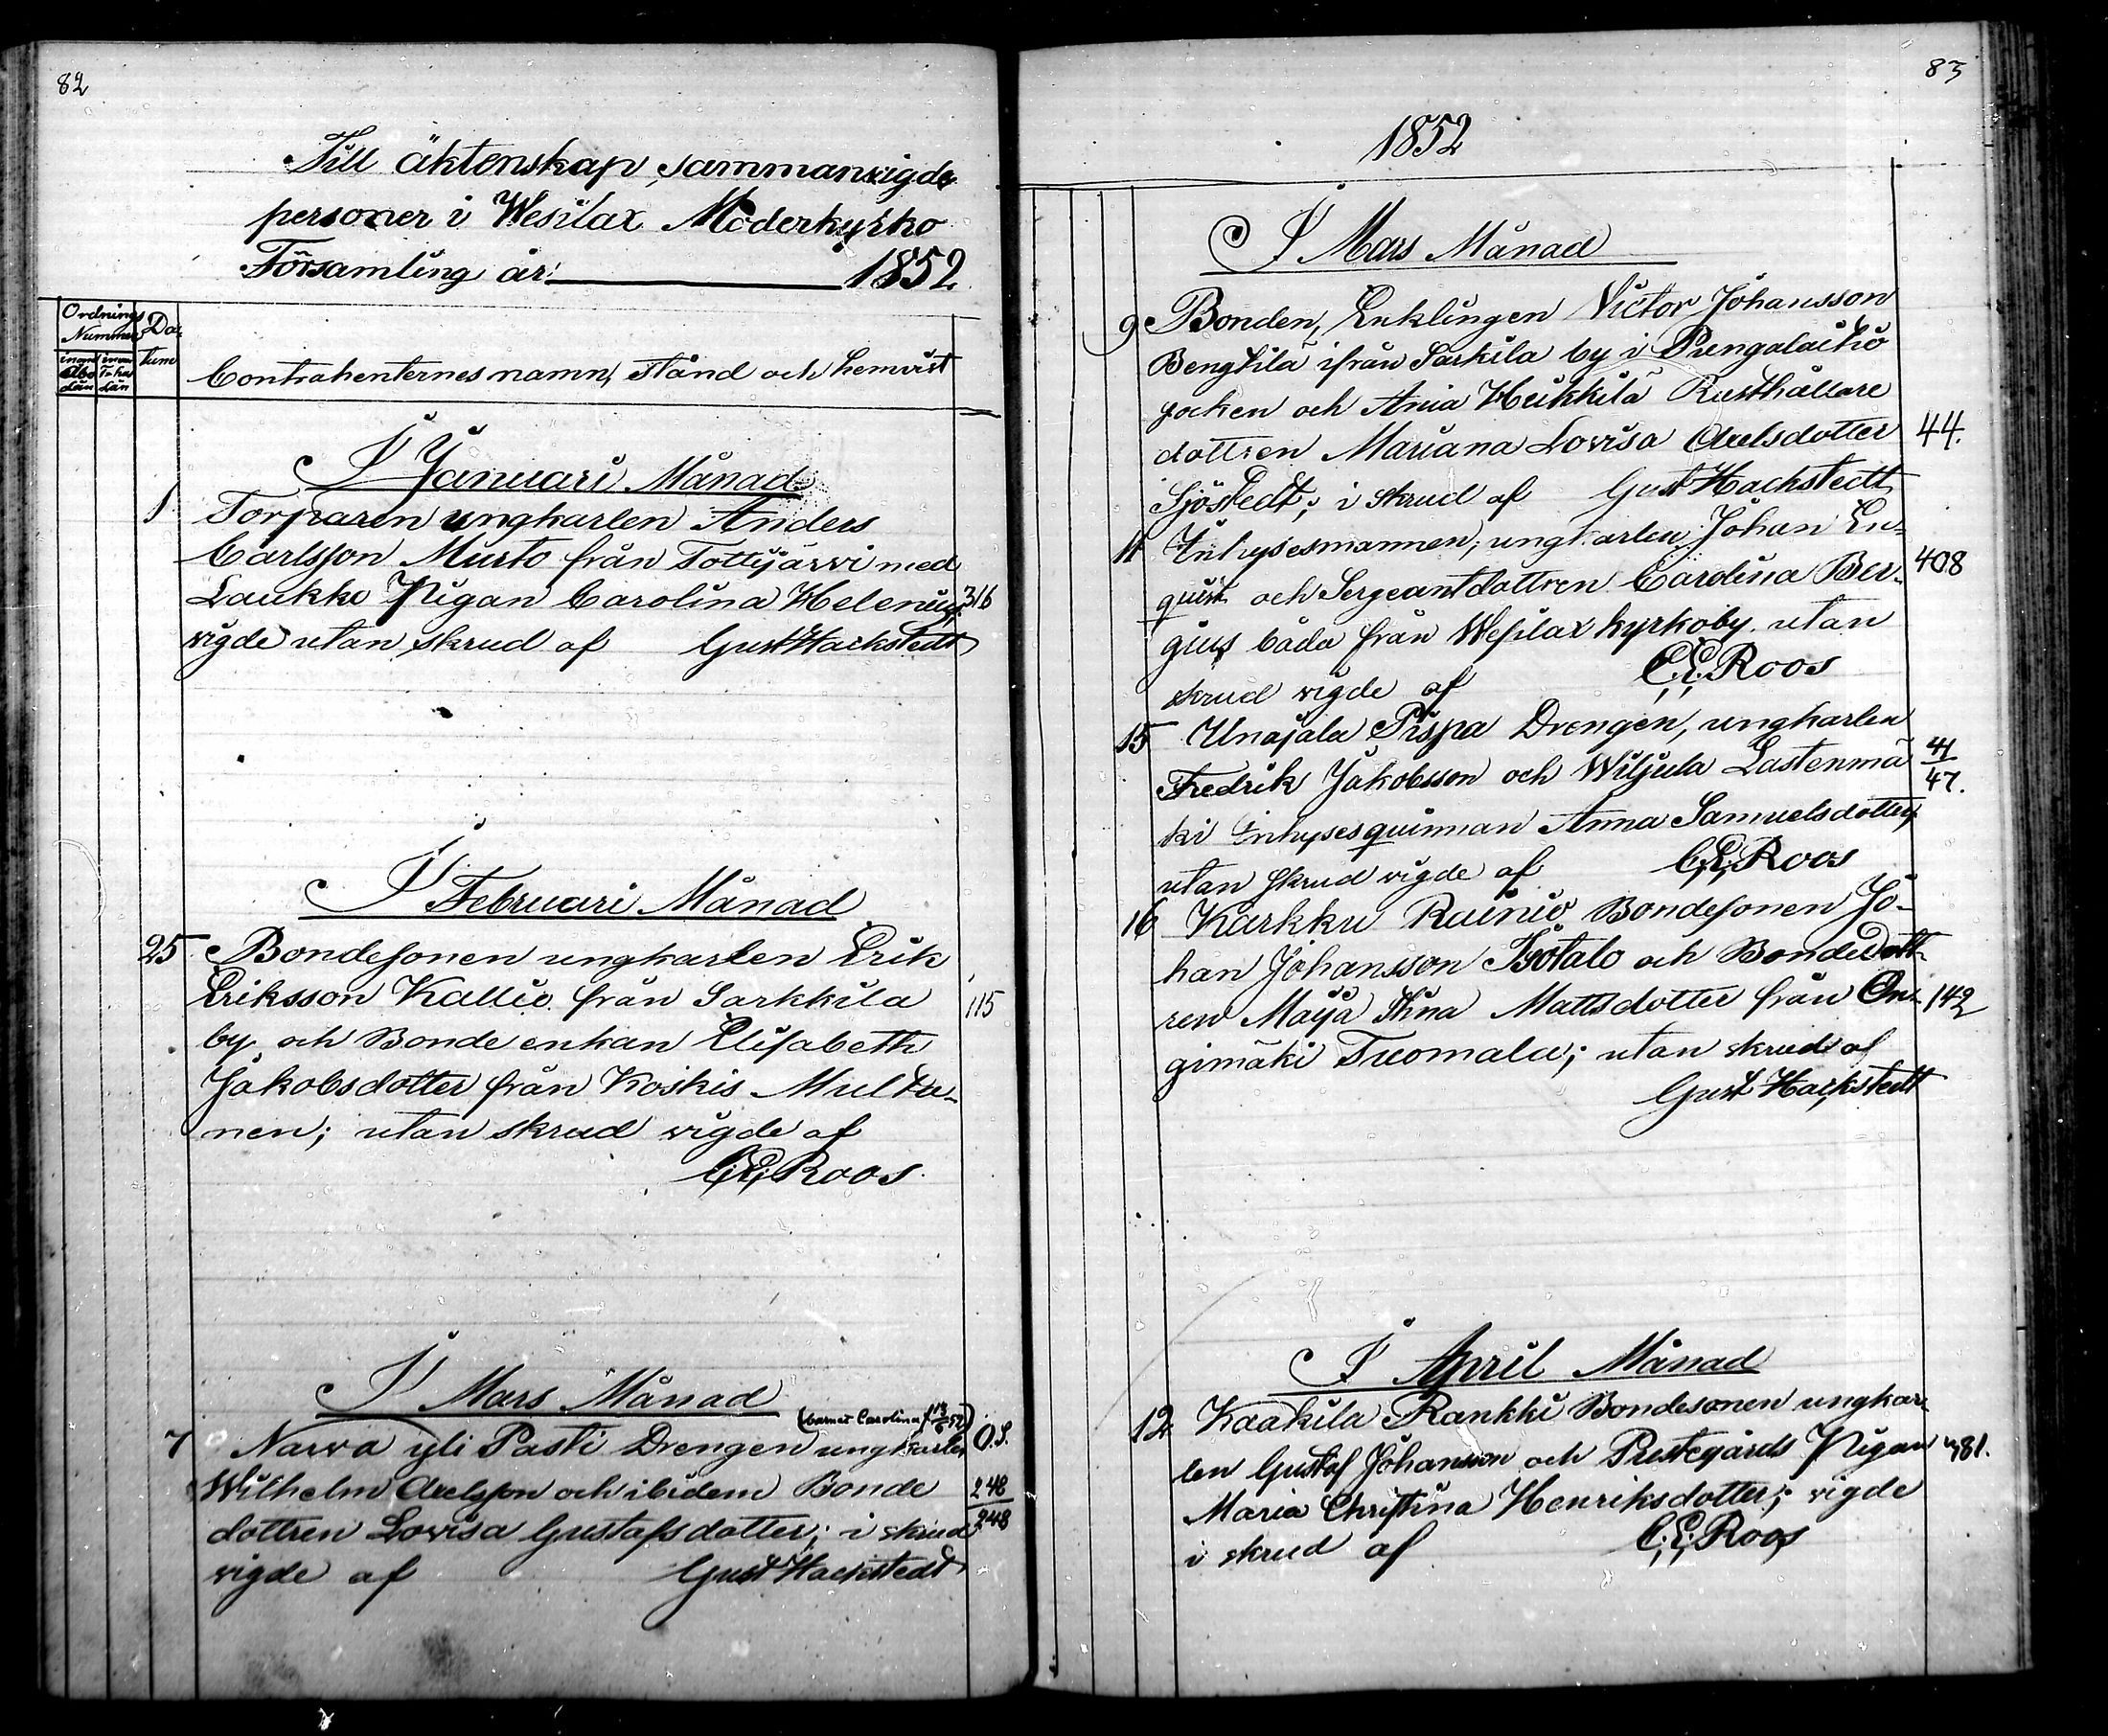 82
Till äktenskap sammanvigde
personer i Wesilax Moderkyrko
Församling år: 1852.
Ordnings Nummer
inom Åbo Län
inom T:hus Län
Da-
tum
Contrahenternes namn, stånd och hemvist
I Januari Månad
1 Torparen ungkarlen Anders
Carlsson Murto från Tottijärvi med
Laukko Pigan Carolina Helenius, 316
vigde utan skrud af Gust Hackstedt
I Februari Månad
25 Bondesonen ungkarlen Erik
Eriksson Kallio från Sarkkila 115
by och Bonde enkan Elisabeth
Jakobsdotter från Koskis Multa-
nen; utan skrud vigde af
C.E. Roos
I Mars Månad
(barnet Carolina f 13/5 52)
7 Narva yli Pasti Drengen ungkarlen O.S.
Wilhelm Axelsson och ibidem Bonde 248
dottren Lovisa Gustafsdotter; i skrud 248
vigde af Gust Hackstedt
83
1852
I Mars Månad
9 Bonden, Enklingen Victor Johansson
Bengtilä ifrån Sarkila by i Pungalaitio
socken och Ania Heikkilä Rusthållare
dottren Mariana Lovisa Axelsdotter 44.
Sjöstedt; i skrud af Gust Hackstedt
11 Inhysesmannen, ungkarlen Johan En-
quist och Sergeantdottren Carolina Ber- 408
gius båda från Wesilax kyrkoby. utan
skrud vigde af C.E. Roos
15 Unajala Pispa Drengen, ungkarlen
Fredrik Jakobsson och Wiljula Lastenmä 41/47.
ki Inhysesquinnan Anna Samuelsdotter,
utan skrud vigde af C.E. Roos
16 Karkku Rainio Bondesonen Jo-
han Johansson Isotalo och Bondedott-
ren Maja Stina Mattsdotter från On- 142
gimäki Tuomala; utan skrud af
Gust Hackstedt
I April Månad
12 Kaakila Rankki Bondesonen ungkar-
len Gustaf Johansson och Prestegårds Pigan 481.
Maria Christina Henriksdotter; vigde
i skrud af C.E. Roos